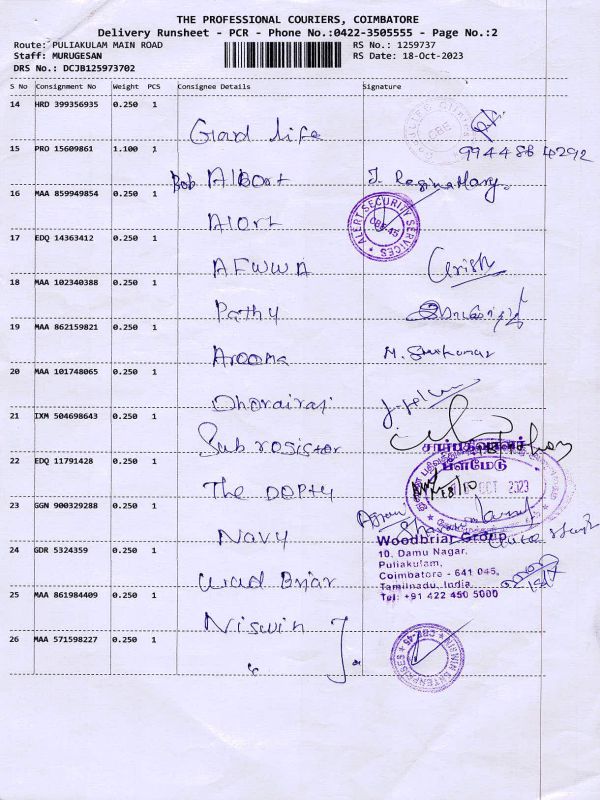 THE PROFESSIONAL COURIERS, COIMBATORE
Delivery Runsheet - PCR - Phone No.:0422-3505555 - Page No.:2
Route: PULIAKULAM MAIN ROAD RS No.: 1259737
Staff: MURUGESAN RS Date: 18-Oct-2023
DRS No.: DCJB125973702
S No Consignment No Weight PCS Consignee Details Signature
14 HRD 399356935 0.250 1
Grad life
9944864292
15 PRO 15609861 1.100 1
Bob Albort J. Regina Mary.
16 MAA 859949854 0.250 1
Alort
ALERT SECURITY SERVICES
CBE-45
17 EDQ 14363412 0.250 1
AFWWA Girish
18 MAA 102340388 0.250 1
Pathy
19 MAA 862159821 0.250 1
Arooma M. Sivakumar
20 MAA 101748065 0.250 1
Dhorairaj
21 IXM 504698643 0.250 1
Sub rosistor
சார்பதிவாளர்
பீளமேடு
22 EDQ 11791428 0.250 1
The DOPTY
18/10
OCT 2023
23 GGN 900329288 0.250 1
Navy
24 GDR 5324359 0.250 1
Woodbriar Group
10, Damu Nagar,
Puliakulam,
Coimbatore - 641 045,
Tamilnadu, India.
Tel: +91 422 450 5000
wood Briar
25 MAA 861984409 0.250 1
Niswin
26 MAA 571598227 0.250 1
NISWIN ENTERPRISES
CBE-45